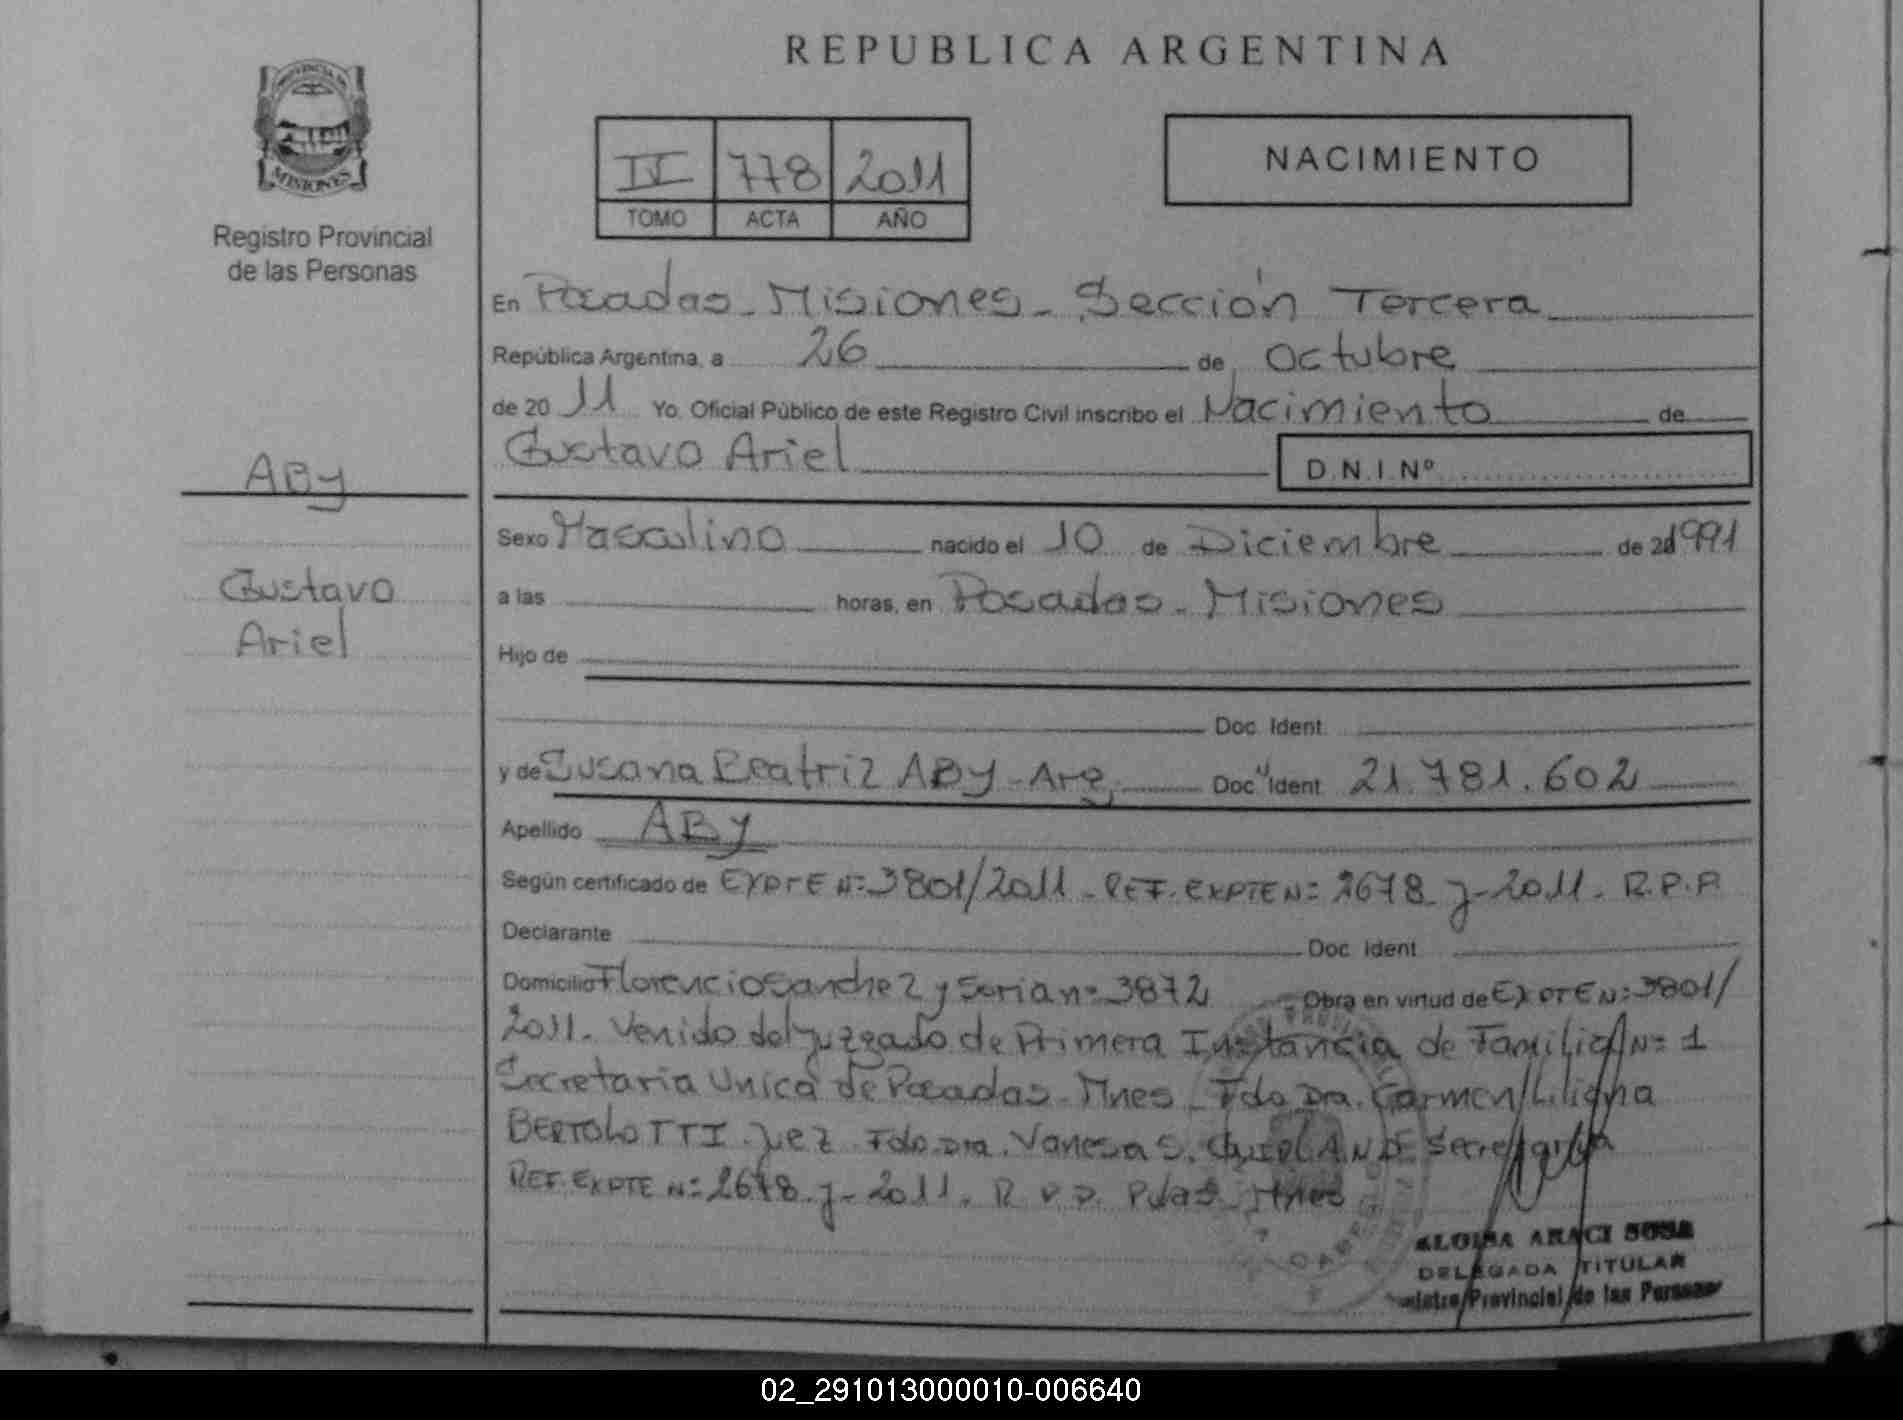 REPUBLICA ARGENTINA
PROVINCIA DE
MISIONES
Registro Provincial
de las Personas
IV 778 2011
TOMO ACTA AÑO
NACIMIENTO
En Posadas - Misiones - Sección Tercera
República Argentina, a 26 de Octubre
de 20 11 Yo, Oficial Público de este Registro Civil inscribo el Nacimiento de
Gustavo Ariel D.N.I.Nº
ABY
Gustavo
Ariel
Sexo Masculino nacido el 10 de Diciembre de 20 1991
a las horas, en Posadas - Misiones
Hijo de
Doc. Ident.
y de Susana Beatriz ABY - Arg. Doc. Ident. 21.781.602
Apellido ABY
Según certificado de EXPTE Nº 3801/2011 - REF. EXPTE Nº 2678 J-2011 - R.P.P.
Declarante Doc. Ident.
Domicilio Florencio Sanchez y Soria nº 3872 Obra en virtud de EXPTE Nº 3801/
2011. Venido del Juzgado de Primera Instancia de Familia Nº 1
Secretaria Unica de Posadas - Mnes - Fdo Dra. Carmen Liliana
BERTOLOTTI - Juez Fdo. Dra. Vanesa S. Secretaria
REF. EXPTE Nº 2678 J-2011. R.P.P. Pdas - Mnes
ARACI SOSA
DELEGADA TITULAR
Provincial de las Personas
02_291013000010-006640